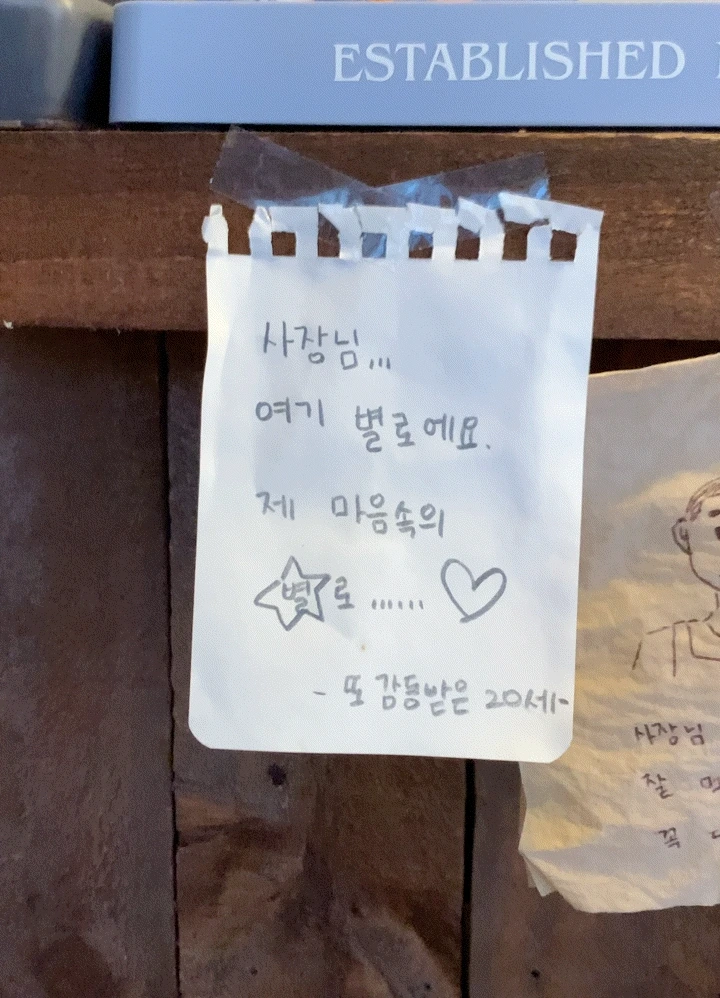 ESTABLISHED
사장님,,,
여기 별로에요.
제 마음속의
별로 ...... ♡
- 또 감동받은 20세-
사장님
잘
꼭